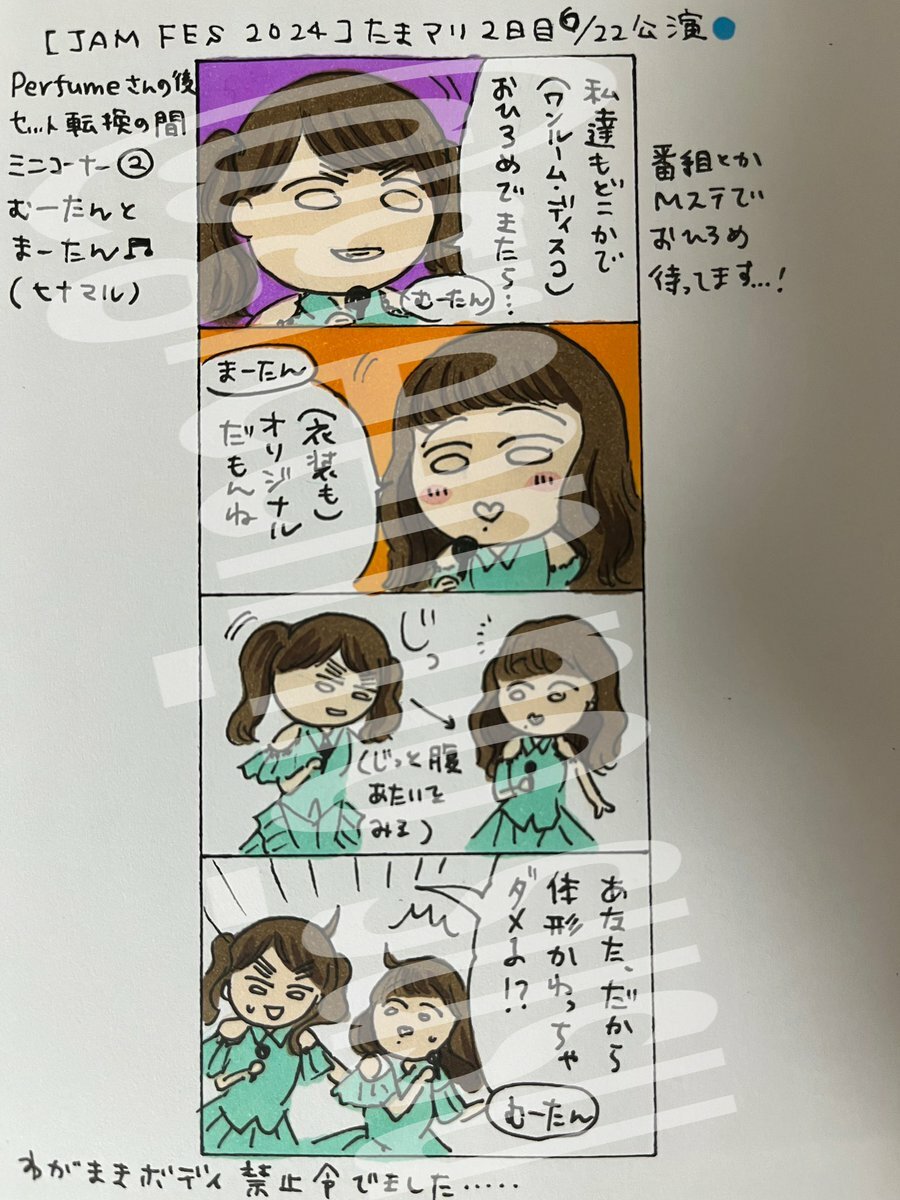 [JAM FES 2024]たまアリ2日目6/22公演
Perfumeさんの後
セット転換の間
ミニコーナー②
むーたんと
まーたん♬
(ヒナマル)
私達もどこかで
(ワンルーム・ディスコ)
おひろめできたら…
むーたん
番組とか
Mステで
おひろめ
待ってます…!
まーたん
(衣装も)
オリジナル
だもんね
じっ
(じっと腹
あたいを
みる)
あなた、だから
体形かわっちゃ
ダメよ!?
むーたん
わがままボディ禁止令でました.....